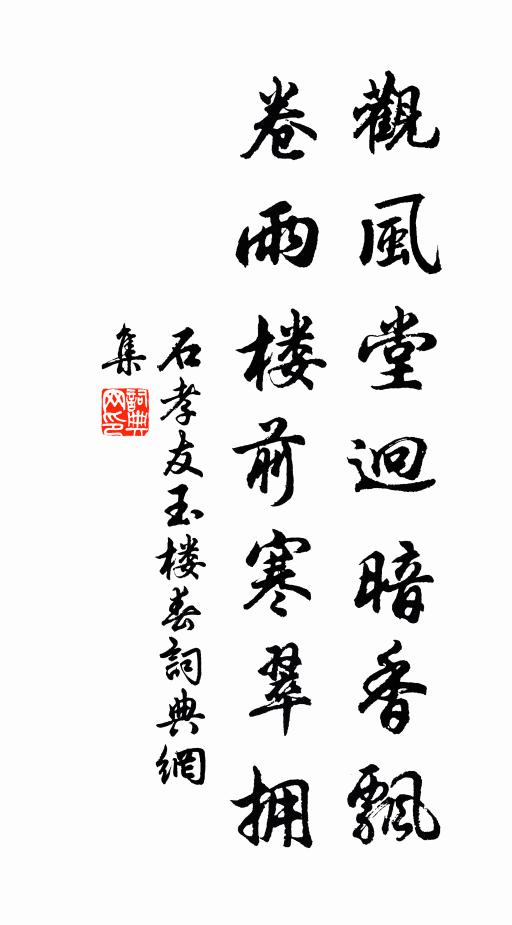 觀風堂迥暗香飄
卷雨楼前寒翠拥
石孝友玉楼春詞典網
集
詞典
网印